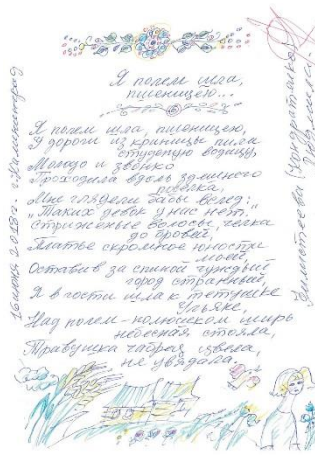 Я полем шла,
пшеницею...
Я полем шла, пшеницею,
У дороги из криницы пила
студёную водицу,
Молодо и звонко
Проходила вдоль здешнего
посёлка,
Мне глядели бабы вслед:
„Таких девок у нас нет."
Стриженые волосы, чёлка
до бровей,
Платье скромное юности
моей,
Оставив за спиной чуждый
город странный,
Я в гости шла к тётушке
Ульяне,
Над полем-колоском ширь
небесная стояла,
Травушка чабрец цвела,
не увядала.
г. Калининград
Людмила.